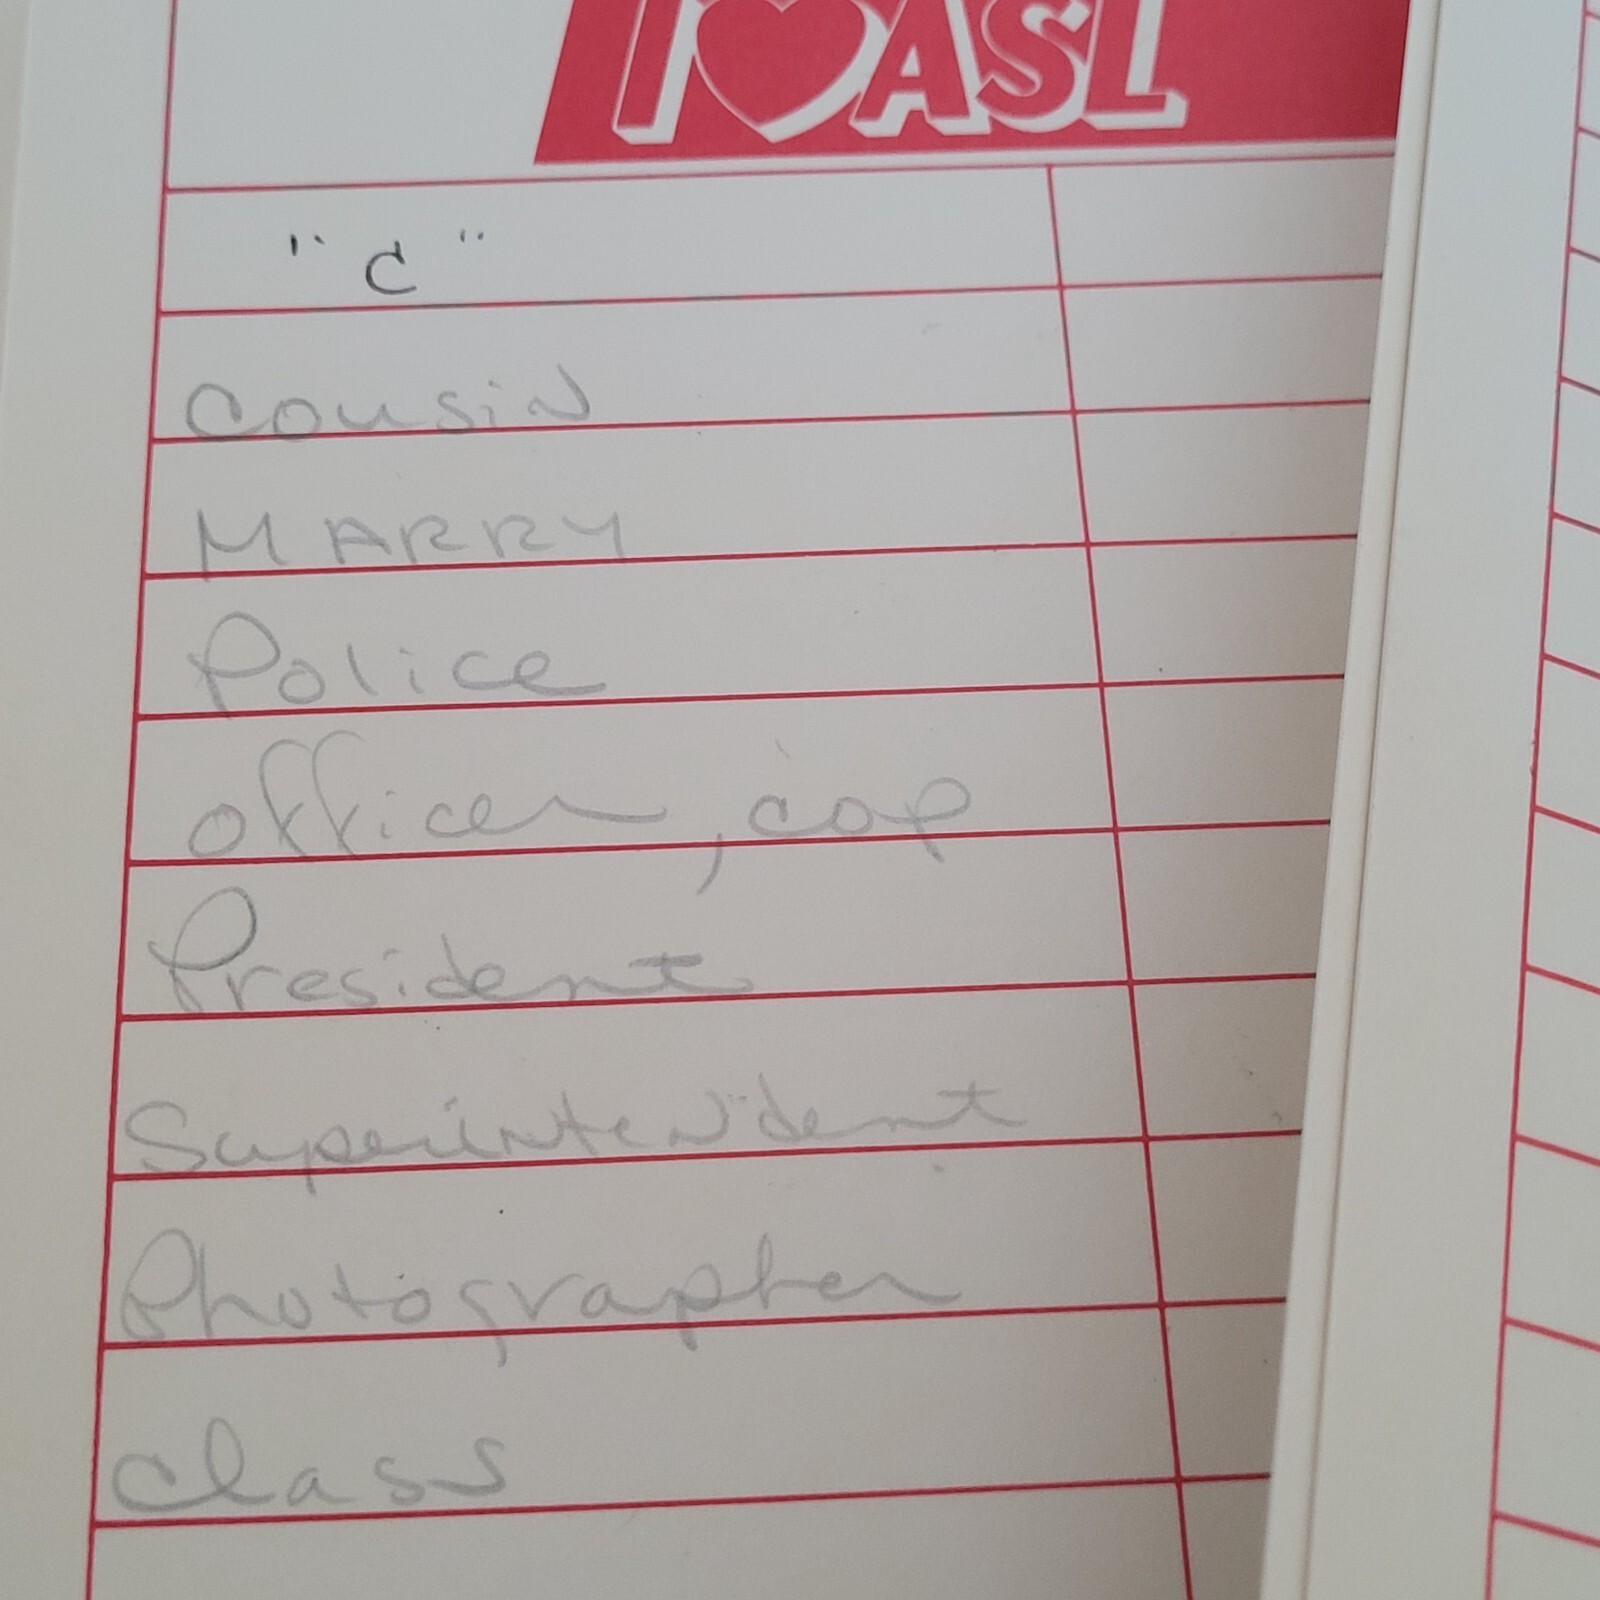 I ♥ ASL
"C"
Cousin
MARRY
Police
officer, cop
President
Superintendent
Photographer
class